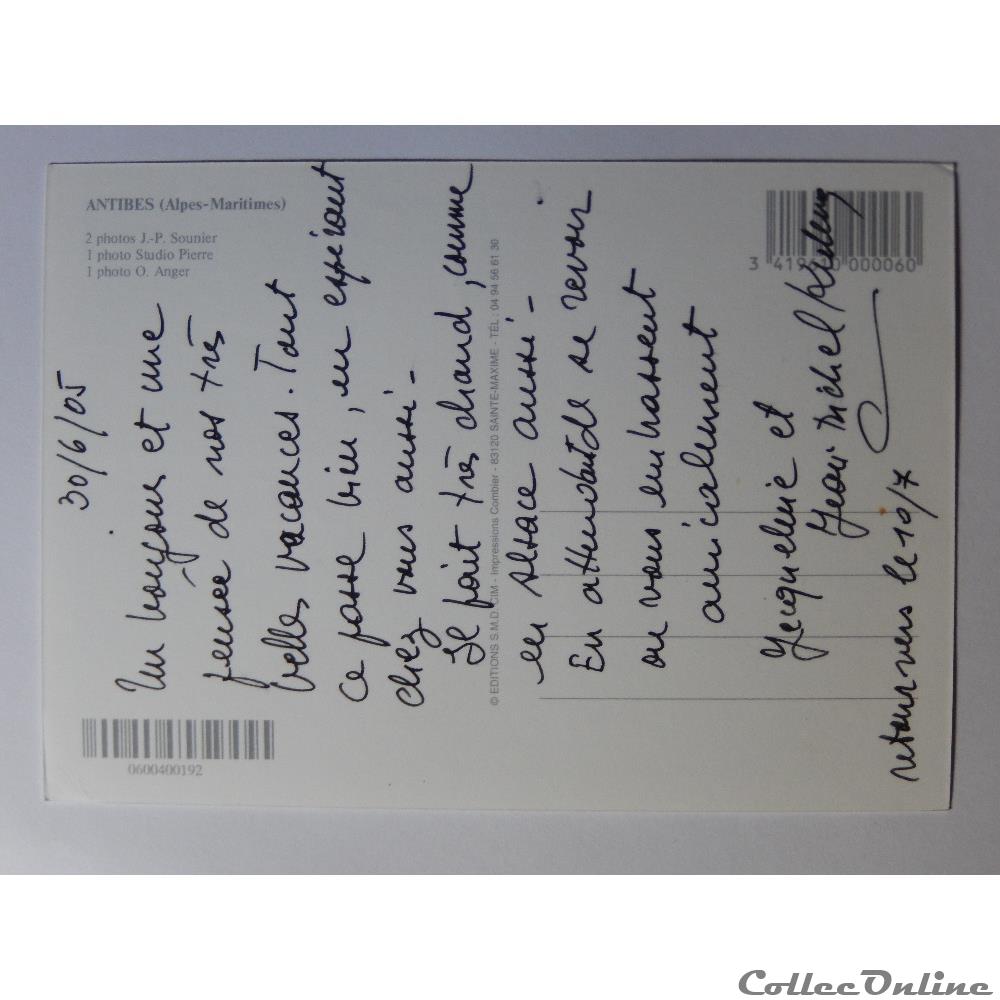 ANTIBES (Alpes-Maritimes)
2 photos J.-P. Sounier
1 photo Studio Pierre
1 photo O. Anger
3 419610 000060
© EDITIONS S.M.D. CIM - Impressions Combier - 83120 SAINTE-MAXIME - TÉL : 04 94 56 61 30
0600400192
30/6/05
Un bonjour et une
pensée de nos très
belles vacances. Tout
ce passe bien, en espérant
chez vous aussi -
Il fait très chaud, comme
en Alsace aussi -
En attendant de se revoir
on vous embrassent
amicalement
Jacqueline et
Jean Michel
retour vers le 10/7
CollecOnline